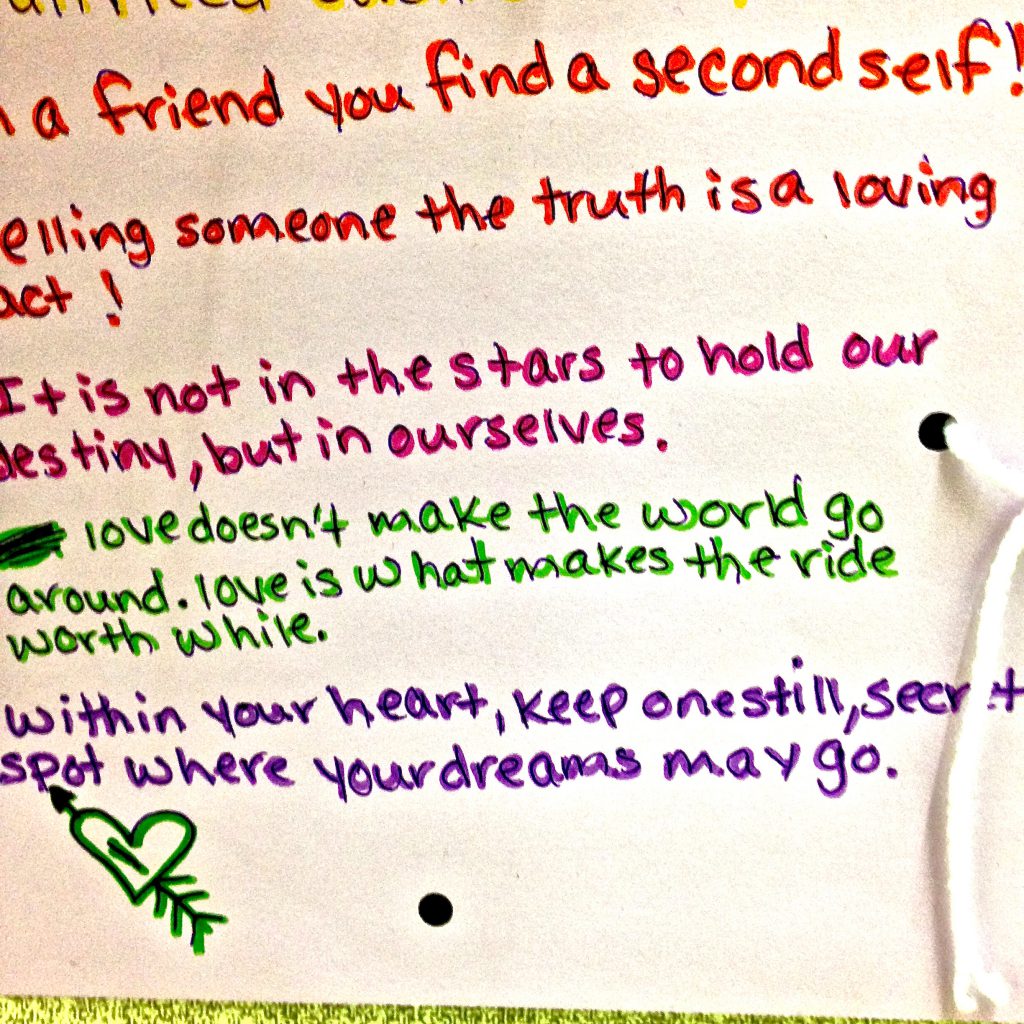 a friend you find a second self!
elling someone the truth is a loving
act!
It is not in the stars to hold our
destiny, but in ourselves.
love doesn't make the world go
around. love is what makes the ride
worth while.
within your heart, keep one still, secret
spot where your dreams may go.